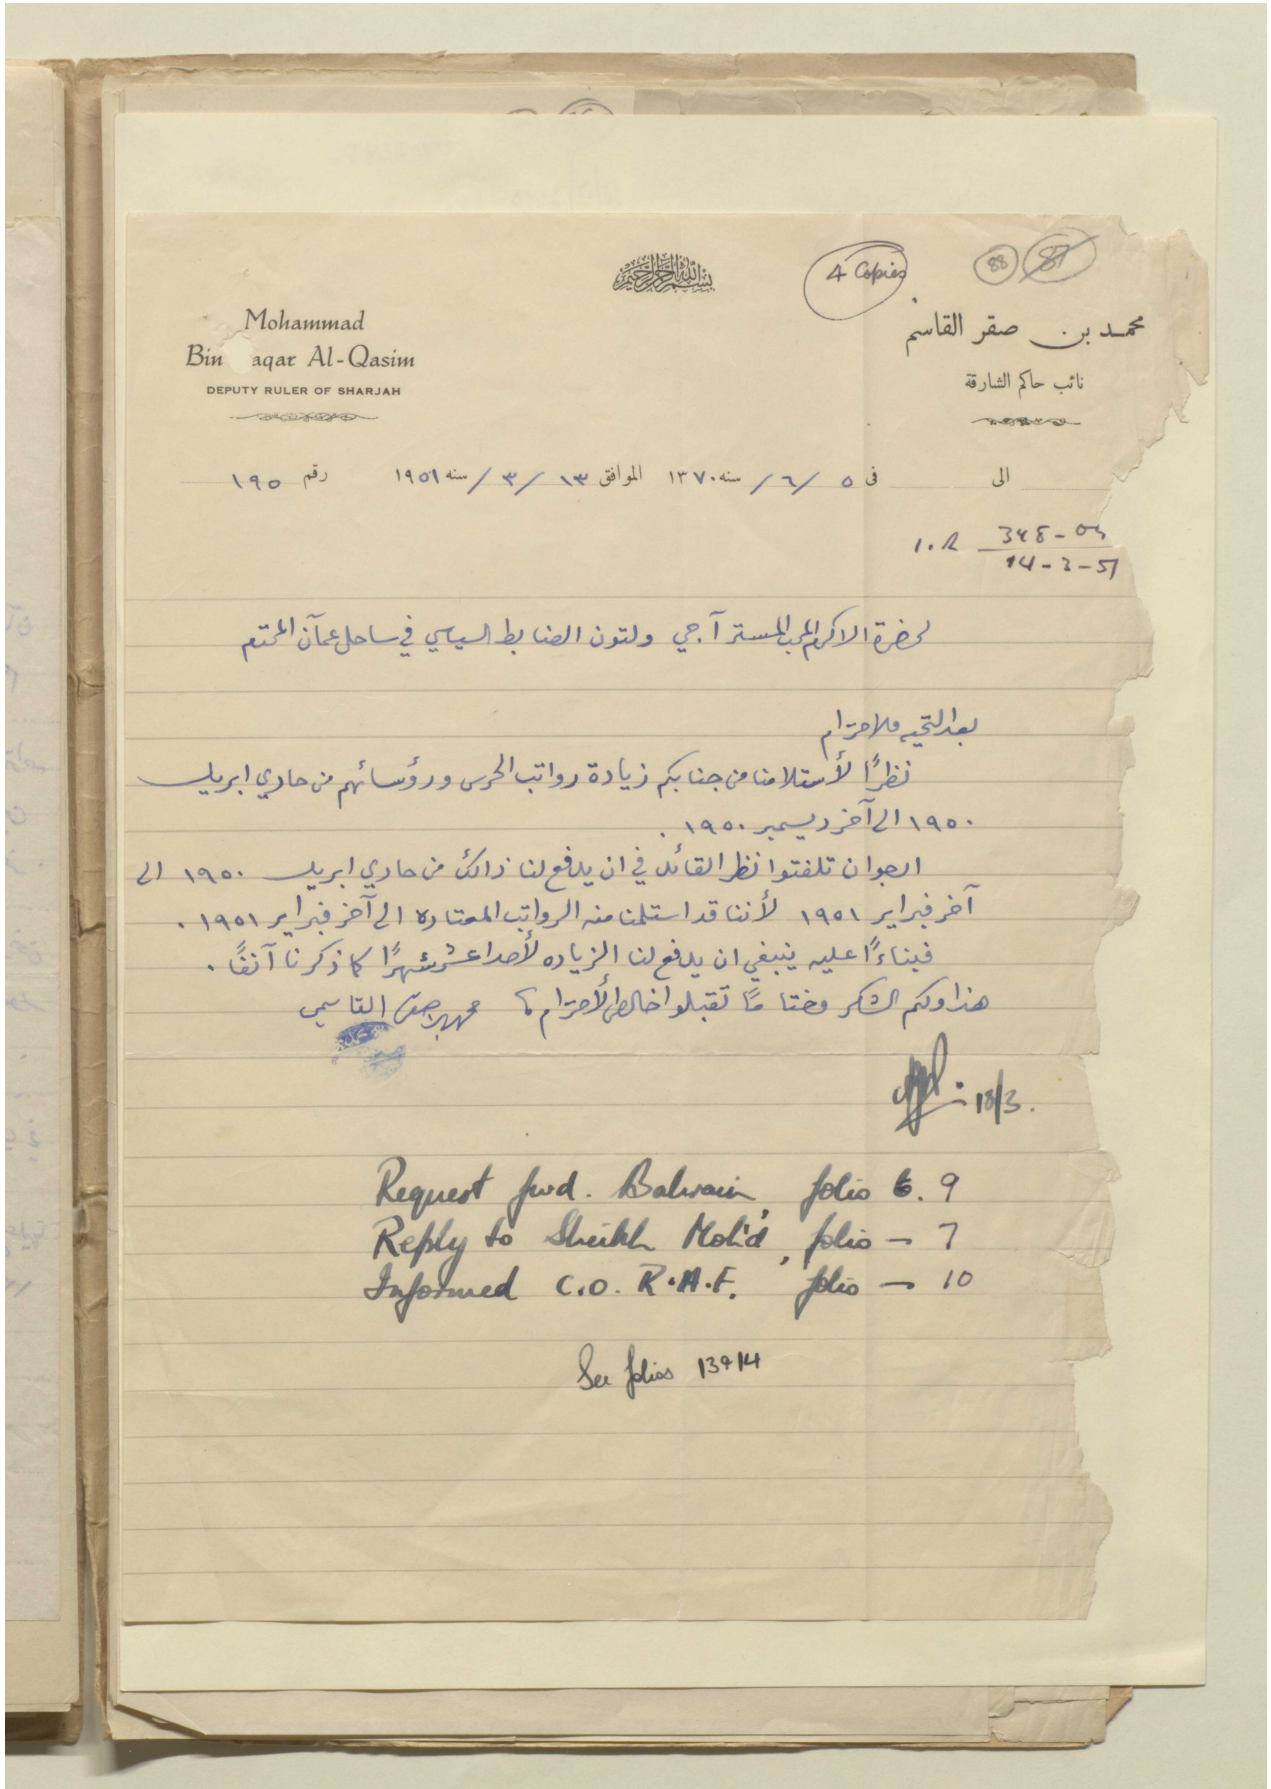 بسم الله الرحمن الرحيم
4 Copies
88 87
Mohammad
Bin aqar Al-Qasim
DEPUTY RULER OF SHARJAH
محمد بن صقر القاسم
نائب حاكم الشارقة
الى فى ٥ / ٦ / سنه ١٣٧٠ الموافق ١٣ / ٣ / سنه ١٩٥١ رقم ١٩٥
348-
14-3-51
لحضرة الاكرم المحب المستر آ. جي ولتون الضابط السياسي في ساحل عمآن المحترم
بعد التحيه والاحترام
نظرًا لأستلامنا من جنابكم زيادة رواتب الحرس ورؤسائهم من حادي ابريل
١٩٥٠ الى آخر ديسمبر ١٩٥٠ .
ارجو ان تلفتوا نظر القائد في ان يدفع لنا ذالك من حادي ابريل ١٩٥٠ الى
آخر فبراير ١٩٥١ لأننا قد استلمنا منه الرواتب المعتاده الى آخر فبراير ١٩٥١ .
فبناءًا عليه ينبغي ان يدفع لنا الزياده لأحدا عشر شهرًا كما ذكرنا آنفًا .
هذا ولكم الشكر وختامًا تقبلوا خالص الأحترام ،، محمد بن صقر القاسمي
18/3.
Request fwd. Bahrain, folio 6. 9
Reply to Sheikh Moh'd, folio – 7
Informed C.O. R.A.F. folio – 10
See folios 13 & 14